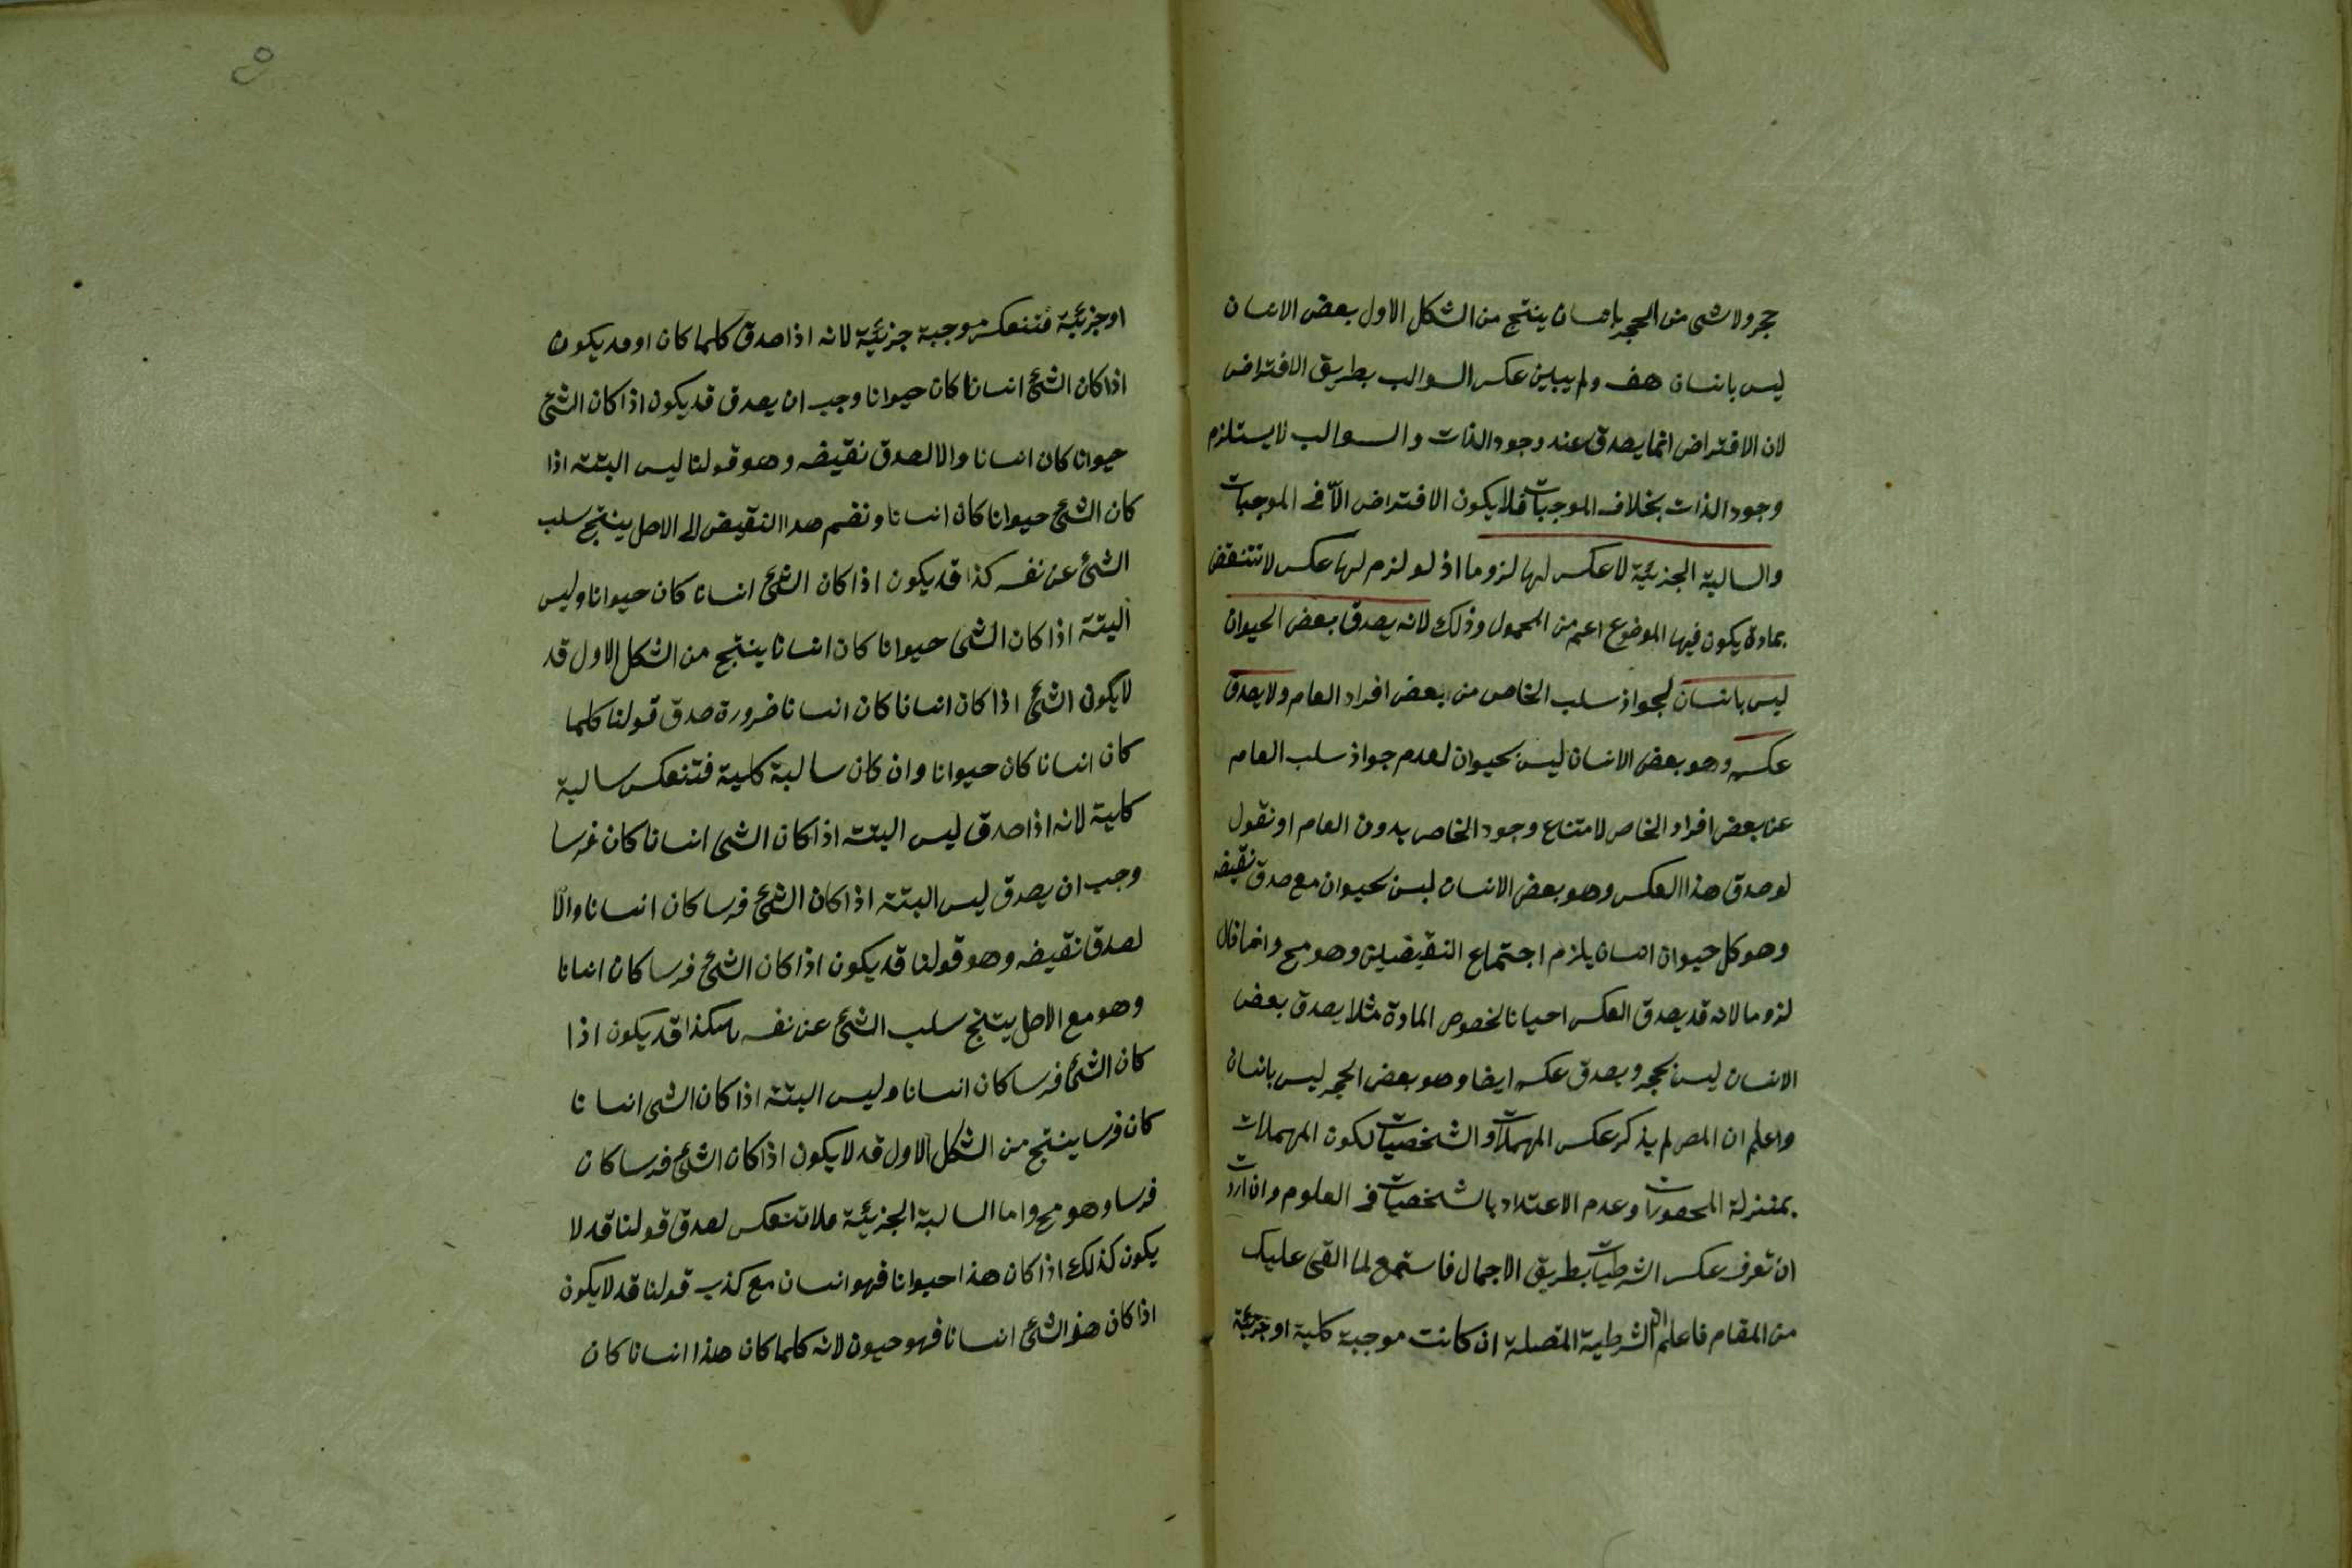 حجر ولا شى من الحجر بانسان ينتج من الشكل الاول بعض الانسان
ليس بانسان هف ولم يبين عكس السوالب بطريق الافتراض
لان الافتراض انما يصدق عند وجود الذات والسوالب لا يستلزم
وجود الذات بخلاف الموجبات فلا يكون الافتراض الا فى الموجبات
والسالبة الجزئية لا عكس لها لزوما اذ لو لزم لها عكس لانتقض
بمادة يكون فيها الموضوع اعم من المحمول وذلك لانه يصدق بعض الحيوان
ليس بانسان لجواز سلب الخاص من بعض افراد العام ولا يصدق
عكسه وهو بعض الانسان ليس بحيوان لعدم جواز سلب العام
عن بعض افراد الخاص لامتناع وجود الخاص بدون العام او نقول
لو صدق هذا العكس وهو بعض الانسان ليس بحيوان مع صدق نقيضه
وهو كل حيوان انسان يلزم اجتماع النقيضين وهو مح وانما قال
لزوما لانه قد يصدق العكس احيانا لخصوص المادة مثلا يصدق بعض
الانسان ليس بحجر ويصدق عكسه ايضا وهو بعض الحجر ليس بانسان
واعلم ان المص لم يذكر عكس المهملات والشخصيات لكون المهملات
بمنزلة المحصورات وعدم الاعتداد بالشخصيات فى العلوم وان اردت
ان تعرف عكس الشرطيات بطريق الاجمال فاستمع لما القى عليك
من المقام فاعلم ان الشرطية المتصلة ان كانت موجبة كلية او جزئية
او جزئية فتنعكس موجبة جزئية لانه اذا صدق كلما كان او قد يكون
اذا كان الشئ انسانا كان حيوانا وجب ان يصدق قد يكون اذا كان الشئ
حيوانا كان انسانا والا لصدق نقيضه وهو قولنا ليس البتة اذا
كان الشئ حيوانا كان انسانا ونضم هذا النقيض الى الاصل ينتج سلب
الشئ عن نفسه كذا قد يكون اذا كان الشئ انسانا كان حيوانا وليس
البتة اذا كان الشى حيوانا كان انسانا ينتج من الشكل الاول قد
لا يكون الشئ اذا كان انسانا كان انسانا ضرورة صدق قولنا كلما
كان انسانا كان حيوانا وان كان سالبة كلية فتنعكس سالبة
كلية لانه اذا صدق ليس البتة اذا كان الشى انسانا كان فرسا
وجب ان يصدق ليس البتة اذا كان الشئ فرسا كان انسانا والا
لصدق نقيضه وهو قولنا قد يكون اذا كان الشئ فرسا كان انسانا
وهو مع الاصل ينتج سلب الشئ عن نفسه هكذا قد يكون اذا
كان الشئ فرسا كان انسانا وليس البتة اذا كان الشى انسانا
كان فرسا ينتج من الشكل الاول قد لا يكون اذا كان الشئ فرسا كان
فرسا وهو مح واما السالبة الجزئية فلا تنعكس لصدق قولنا قد لا
يكون كذلك اذا كان هذا حيوانا فهو انسان مع كذب قولنا قد لا يكون
اذا كان هذا الشئ انسانا فهو حيون لانه كلما كان هذا انسانا كان